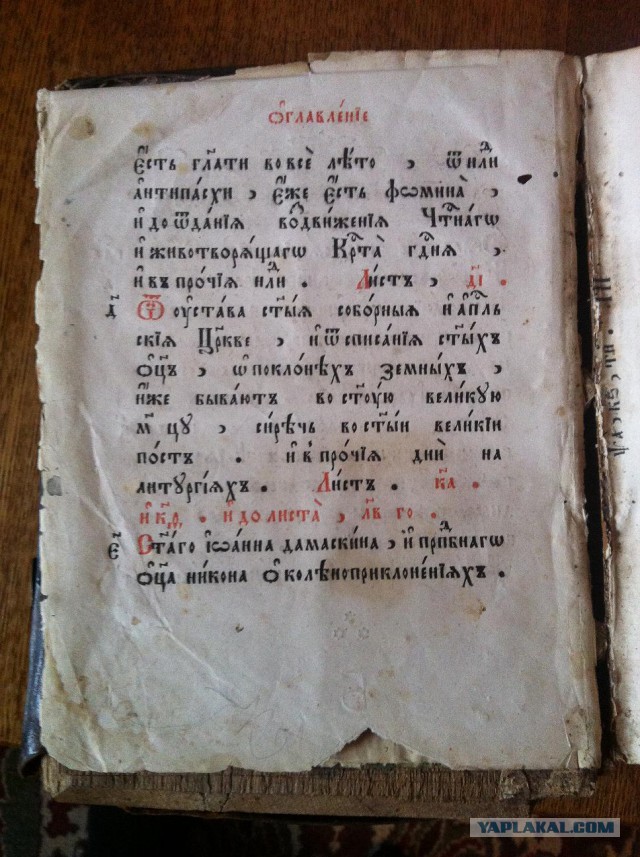 Ѡ҆главле́нїе
є҆́сть гл҃ати во всѐ лѣ́то , ѿ нл҃дⷧ
а҆нтипа́схи , є҆́же є҆́сть ѳѡмина̀ ,
и҆ до ѿда́нїѧ воз̾дви́женїѧ Чⷭ҇тна́гѡ
и҆ животворѧ́щагѡ Крⷭ҇та̀ гдⷭ҇нѧ ,
и҆ въ про́чїѧ нлⷣи . Ли́стъ , д҃і .
д҃ Ѿ ᲂу҆ста́ва ст҃ы́ѧ собо́рныѧ и҆ а҆пⷭ҇ль
скїѧ Цр҃кве , и҆ ѿ списа́нїѧ ст҃ы́хъ
ѻ҆ц҃ъ , ѡ҆ покло́нѣхъ земны́хъ ,
и҆̀же быва́ютъ во ст҃у́ю вели́кую
м҃цу , си́рѣчь во ст҃ы́и вели́кїи
по́стъ . и҆ в про́чїѧ дни̑ на
литꙋргі́ѧхъ . Ли́стъ . к҃а
и҆ к҃д . и҆ до листа̀ , л҃в го .
є҃ Ст҃а́го і҆ѡа́нна дамаски́на , и҆ прпⷣбнагѡ
ѻ҆ц҃а ни́кона ѻ҆ колѣноприклоне́нїѧхъ .
YAPLAKAL.COM